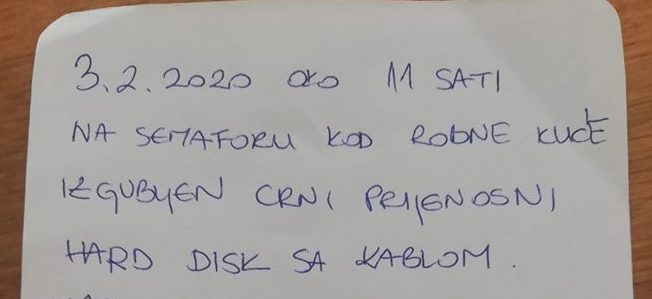 3.2.2020 oko 11 SATI
NA SEMAFORU KOD ROBNE KUĆE
IZGUBLJEN CRNI PRIJENOSNI
HARD DISK SA KABLOM.